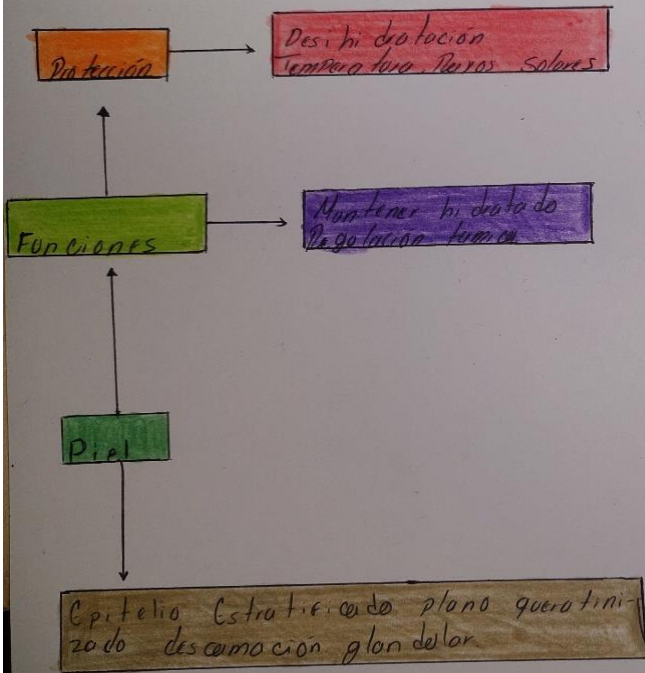 Protección
Desihidratación
Temperatura, Rayos Solares
Funciones
Mantener hidratado
Regulación termica
Piel
Epitelio Estratificado plano queratini-
zado descamación glandular.